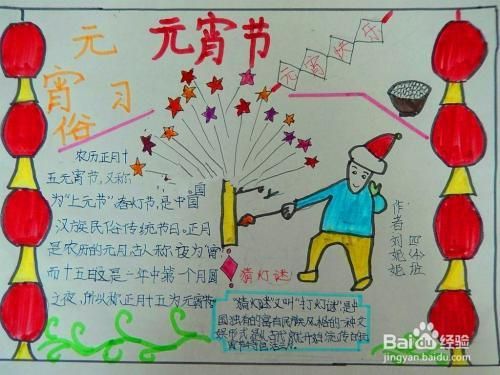 元宵节
元宵快乐
元
宵 习
俗
农历正月十
五元宵节,又称
为“上元节”春灯节,是中国
汉族民俗传统节日。正月
是农历的元月古人称夜为“宵”
而十五日又是一年中第一个月圆
之夜,所以称正月十五为元宵节
国
猜灯谜
“猜灯谜”又叫“打灯谜”是中
国独有的富有民族风格的一种文
作者
刘
Baidu 经验
jingyan.baidu.com